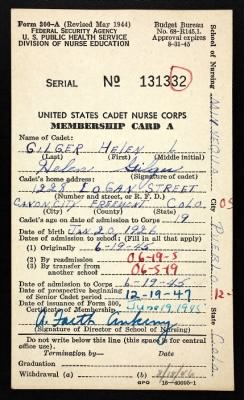 Form 300-A (Revised May 1944)
FEDERAL SECURITY AGENCY
U. S. PUBLIC HEALTH SERVICE
DIVISION OF NURSE EDUCATION
Budget Bureau
No. 68-R145.1.
Approval expires
8-31-45
SERIAL No 131332 D
UNITED STATES CADET NURSE CORPS
MEMBERSHIP CARD A
Name of Cadet:
GILGER HELEN L
(Last) (First) (Middle initial)
Helen Gilger
(Signature of cadet)
Cadet's home address:
1228 LOGAN STREET
(Number and street, or R. F. D.)
CANON CITY FREEMENT COLO.
(City) (County) (State)
Cadet's age on date of admission to Corps 19
Date of birth Jan 20, 1926
Dates of admission to school: (Fill in all that apply)
(1) Originally 6-19-45
(2) By readmission 06-19-3
(3) By transfer from
another school 06-5-49
Date of admission to Corps 6-19-45
Date of prospective beginning
of Senior Cadet period 12-19-47
Date of issuance of Form 300,
Certificate of Membership June 19, 1945
A. Faith Ankeny
(Signature of Director of School of Nursing)
Do not write below this line (this space for
central office use).
Termination by— Date
Graduation
Withdrawal (a) (b)
GPO 16-40095-1
School of Nursing
City PUEBLO
State Colo.